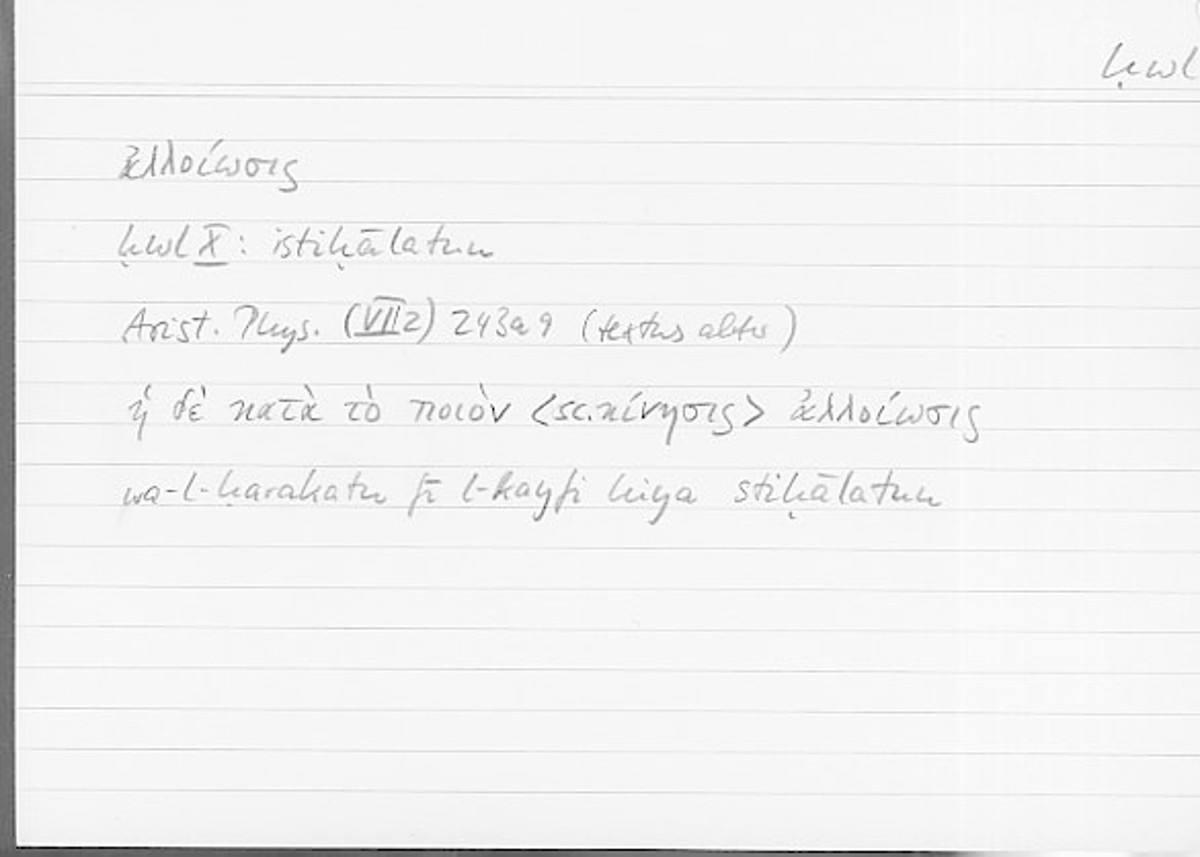 ḥwl
ἀλλοίωσις
ḥwl X: istiḥālatun
Arist. Phys. (VII 2) 243a9 (textus alter)
ἡ δὲ κατὰ τὸ ποιὸν <sc. κίνησις> ἀλλοίωσις
wa-l-ḥarakatu fī l-kayfi hiya stiḥālatun